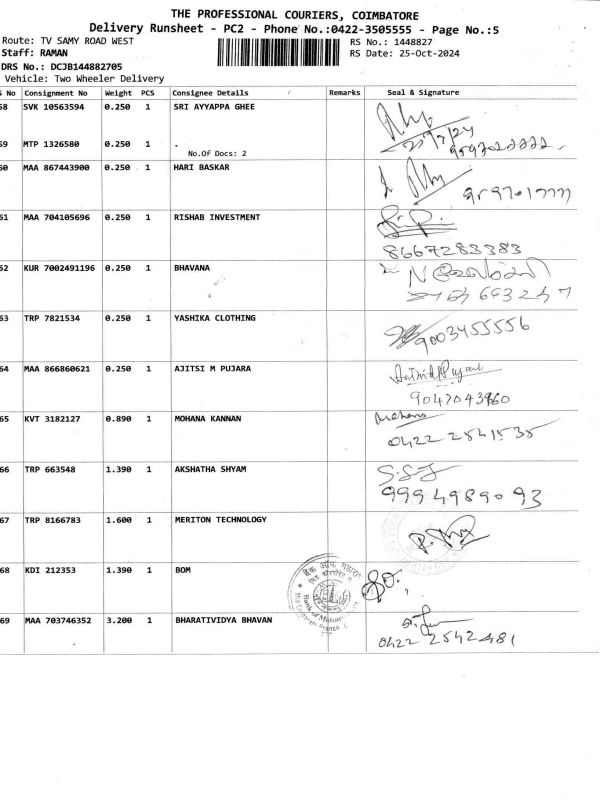 THE PROFESSIONAL COURIERS, COIMBATORE
Delivery Runsheet - PC2 - Phone No.:0422-3505555 - Page No.:5
Route: TV SAMY ROAD WEST
RS No.: 1448827
Staff: RAMAN
RS Date: 25-Oct-2024
DRS No.: DCJB144882705
Vehicle: Two Wheeler Delivery
S No Consignment No Weight PCS Consignee Details Remarks Seal & Signature
58 SVK 10563594 0.250 1 SRI AYYAPPA GHEE
59 MTP 1326580 0.250 1 .
No.Of Docs: 2
60 MAA 867443900 0.250 1 HARI BASKAR
61 MAA 704105696 0.250 1 RISHAB INVESTMENT
8667283383
62 KUR 7002491196 0.250 1 BHAVANA
63 TRP 7821534 0.250 1 YASHIKA CLOTHING
9003455556
64 MAA 866860621 0.250 1 AJITSI M PUJARA
65 KVT 3182127 0.890 1 MOHANA KANNAN
Mohana
0422 2541535
66 TRP 663548 1.390 1 AKSHATHA SHYAM
9994989093
67 TRP 8166783 1.600 1 MERITON TECHNOLOGY
68 KDI 212353 1.390 1 BOM
69 MAA 703746352 3.200 1 BHARATIVIDYA BHAVAN
0422 2542481